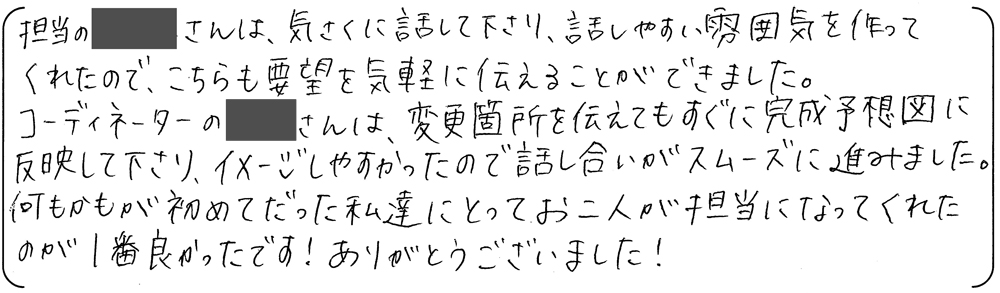 担当の さんは、気さくに話して下さり、話しやすい雰囲気を作って
くれたので、こちらも要望を気軽に伝えることができました。
コーディネーターの さんは、変更箇所を伝えてもすぐに完成予想図に
反映して下さり、イメージしやすかったので話し合いがスムーズに進みました。
何もかもが初めてだった私達にとってお二人が担当になってくれた
のが1番良かったです!ありがとうございました!